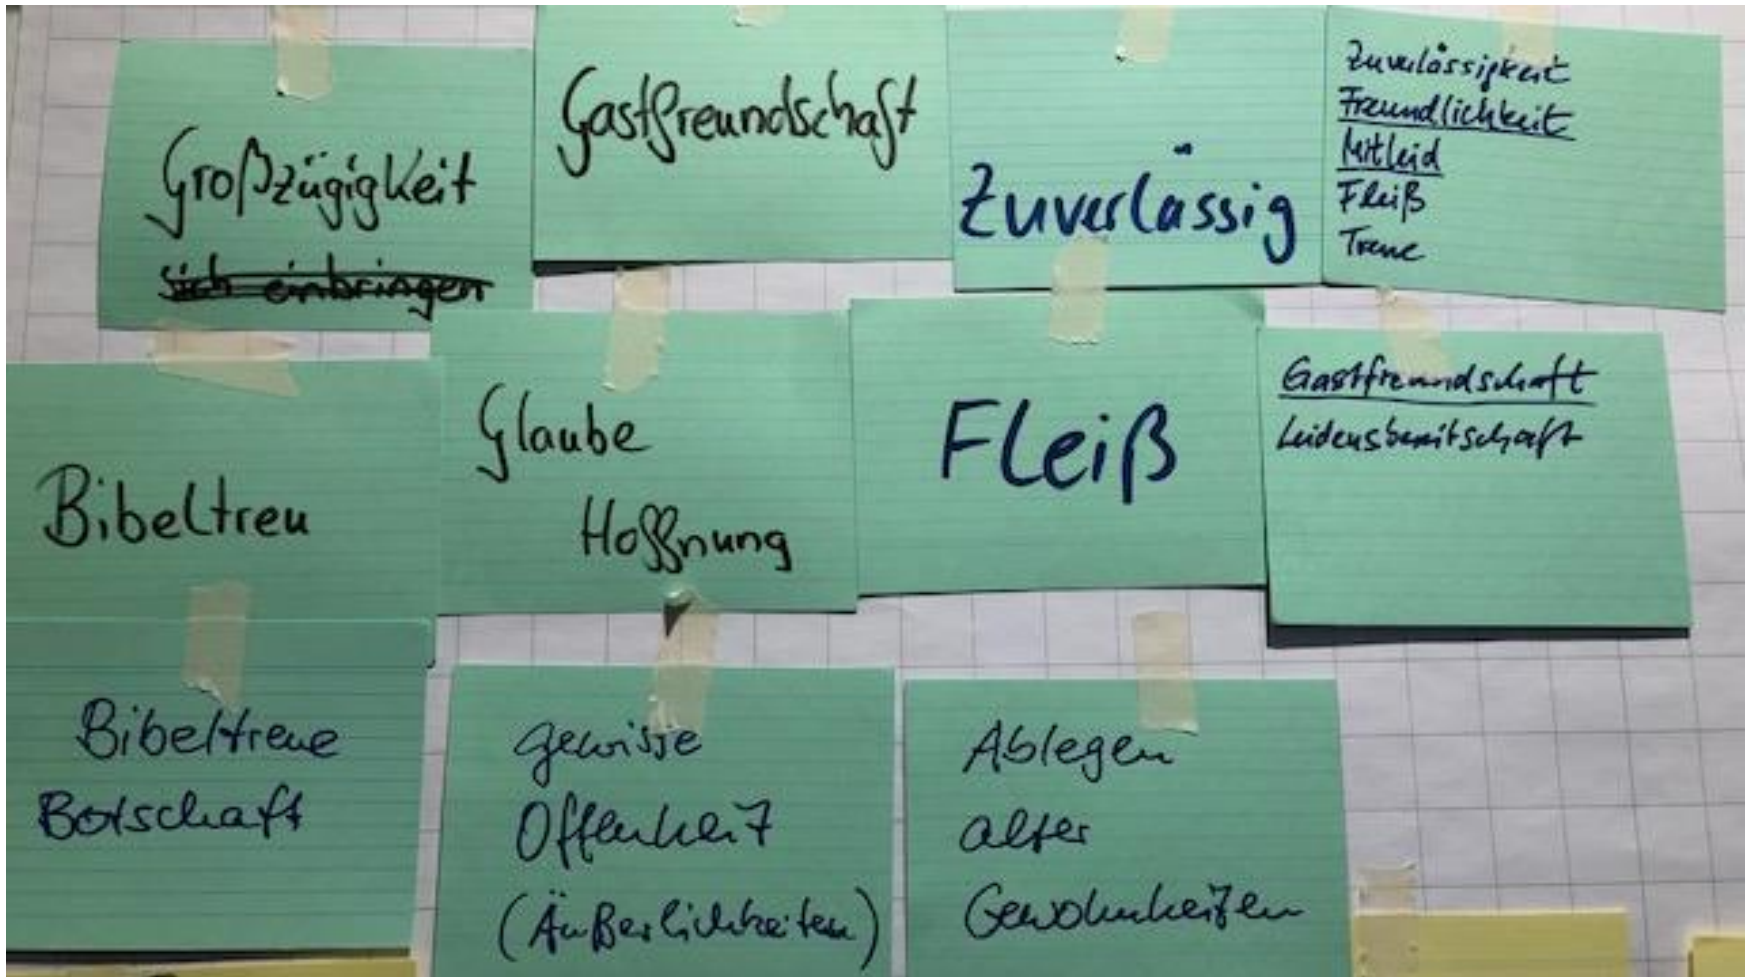 Großzügigkeit
sich einbringen
Gastfreundschaft
Zuverlässig
Zuverlässigkeit
Freundlichkeit
Mitleid
Fleiß
Treue
Bibeltreu
Glaube
Hoffnung
Fleiß
Gastfreundschaft
Leidensbereitschaft
Bibeltreue
Botschaft
gewisse
Offenheit
(Äußerlichkeiten)
Ablegen
alter
Gewohnheiten